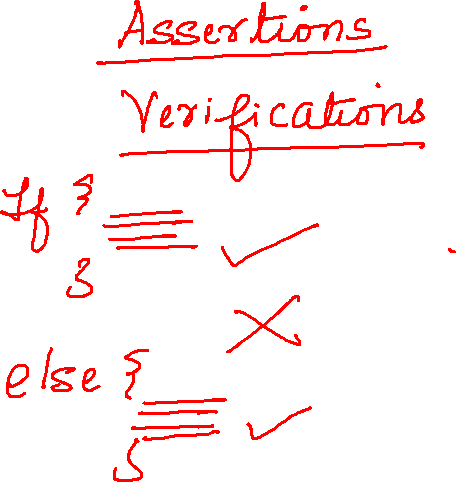 Assertions
Verifications
If {
}
else {
}